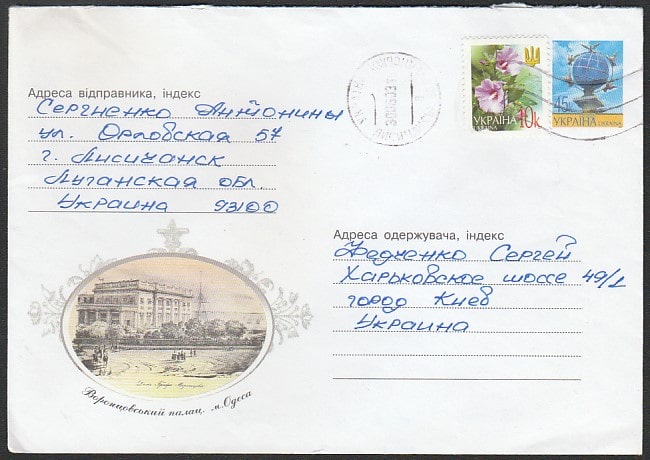 Адреса відправника, індекс
Сергиенко Антонины
ул. Орловская 57
г. Лисичанск
Луганская обл.
Украина 93100
УКРАЇНА
10к
45
УКРАЇНА
UKRAINA
Адреса одержувача, індекс
Федченко Сергей
Харьковское шоссе 49/1
город Киев
Украина
Воронцовський палац. м. Одеса